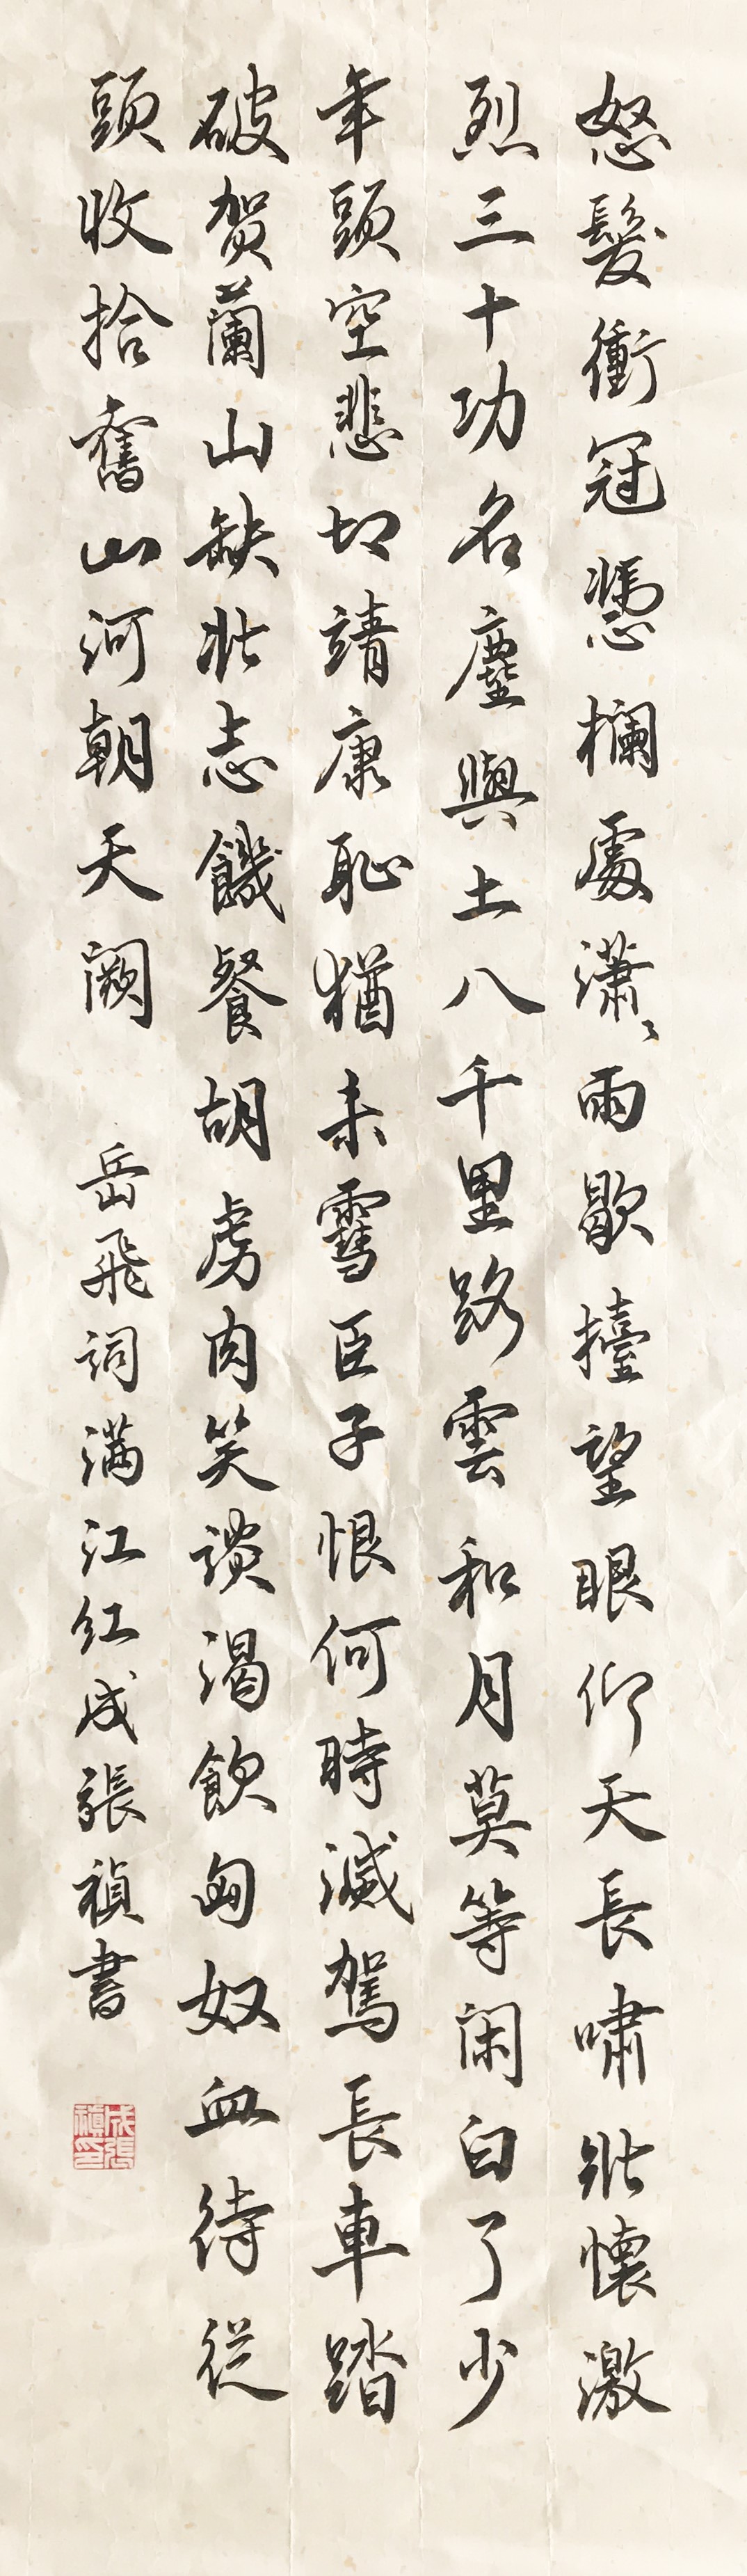 怒髮衝冠憑欄處瀟〻雨歇擡望眼仰天長嘯壯懷激
烈三十功名塵與土八千里路雲和月莫等閑白了少
年頭空悲切靖康恥猶未雪臣子恨何時滅駕長車踏
破贺蘭山缺壯志饑餐胡虜肉笑談渴飲匈奴血待從
頭收拾舊山河朝天闕 岳飛詞满江红成張禎書
成張禎印